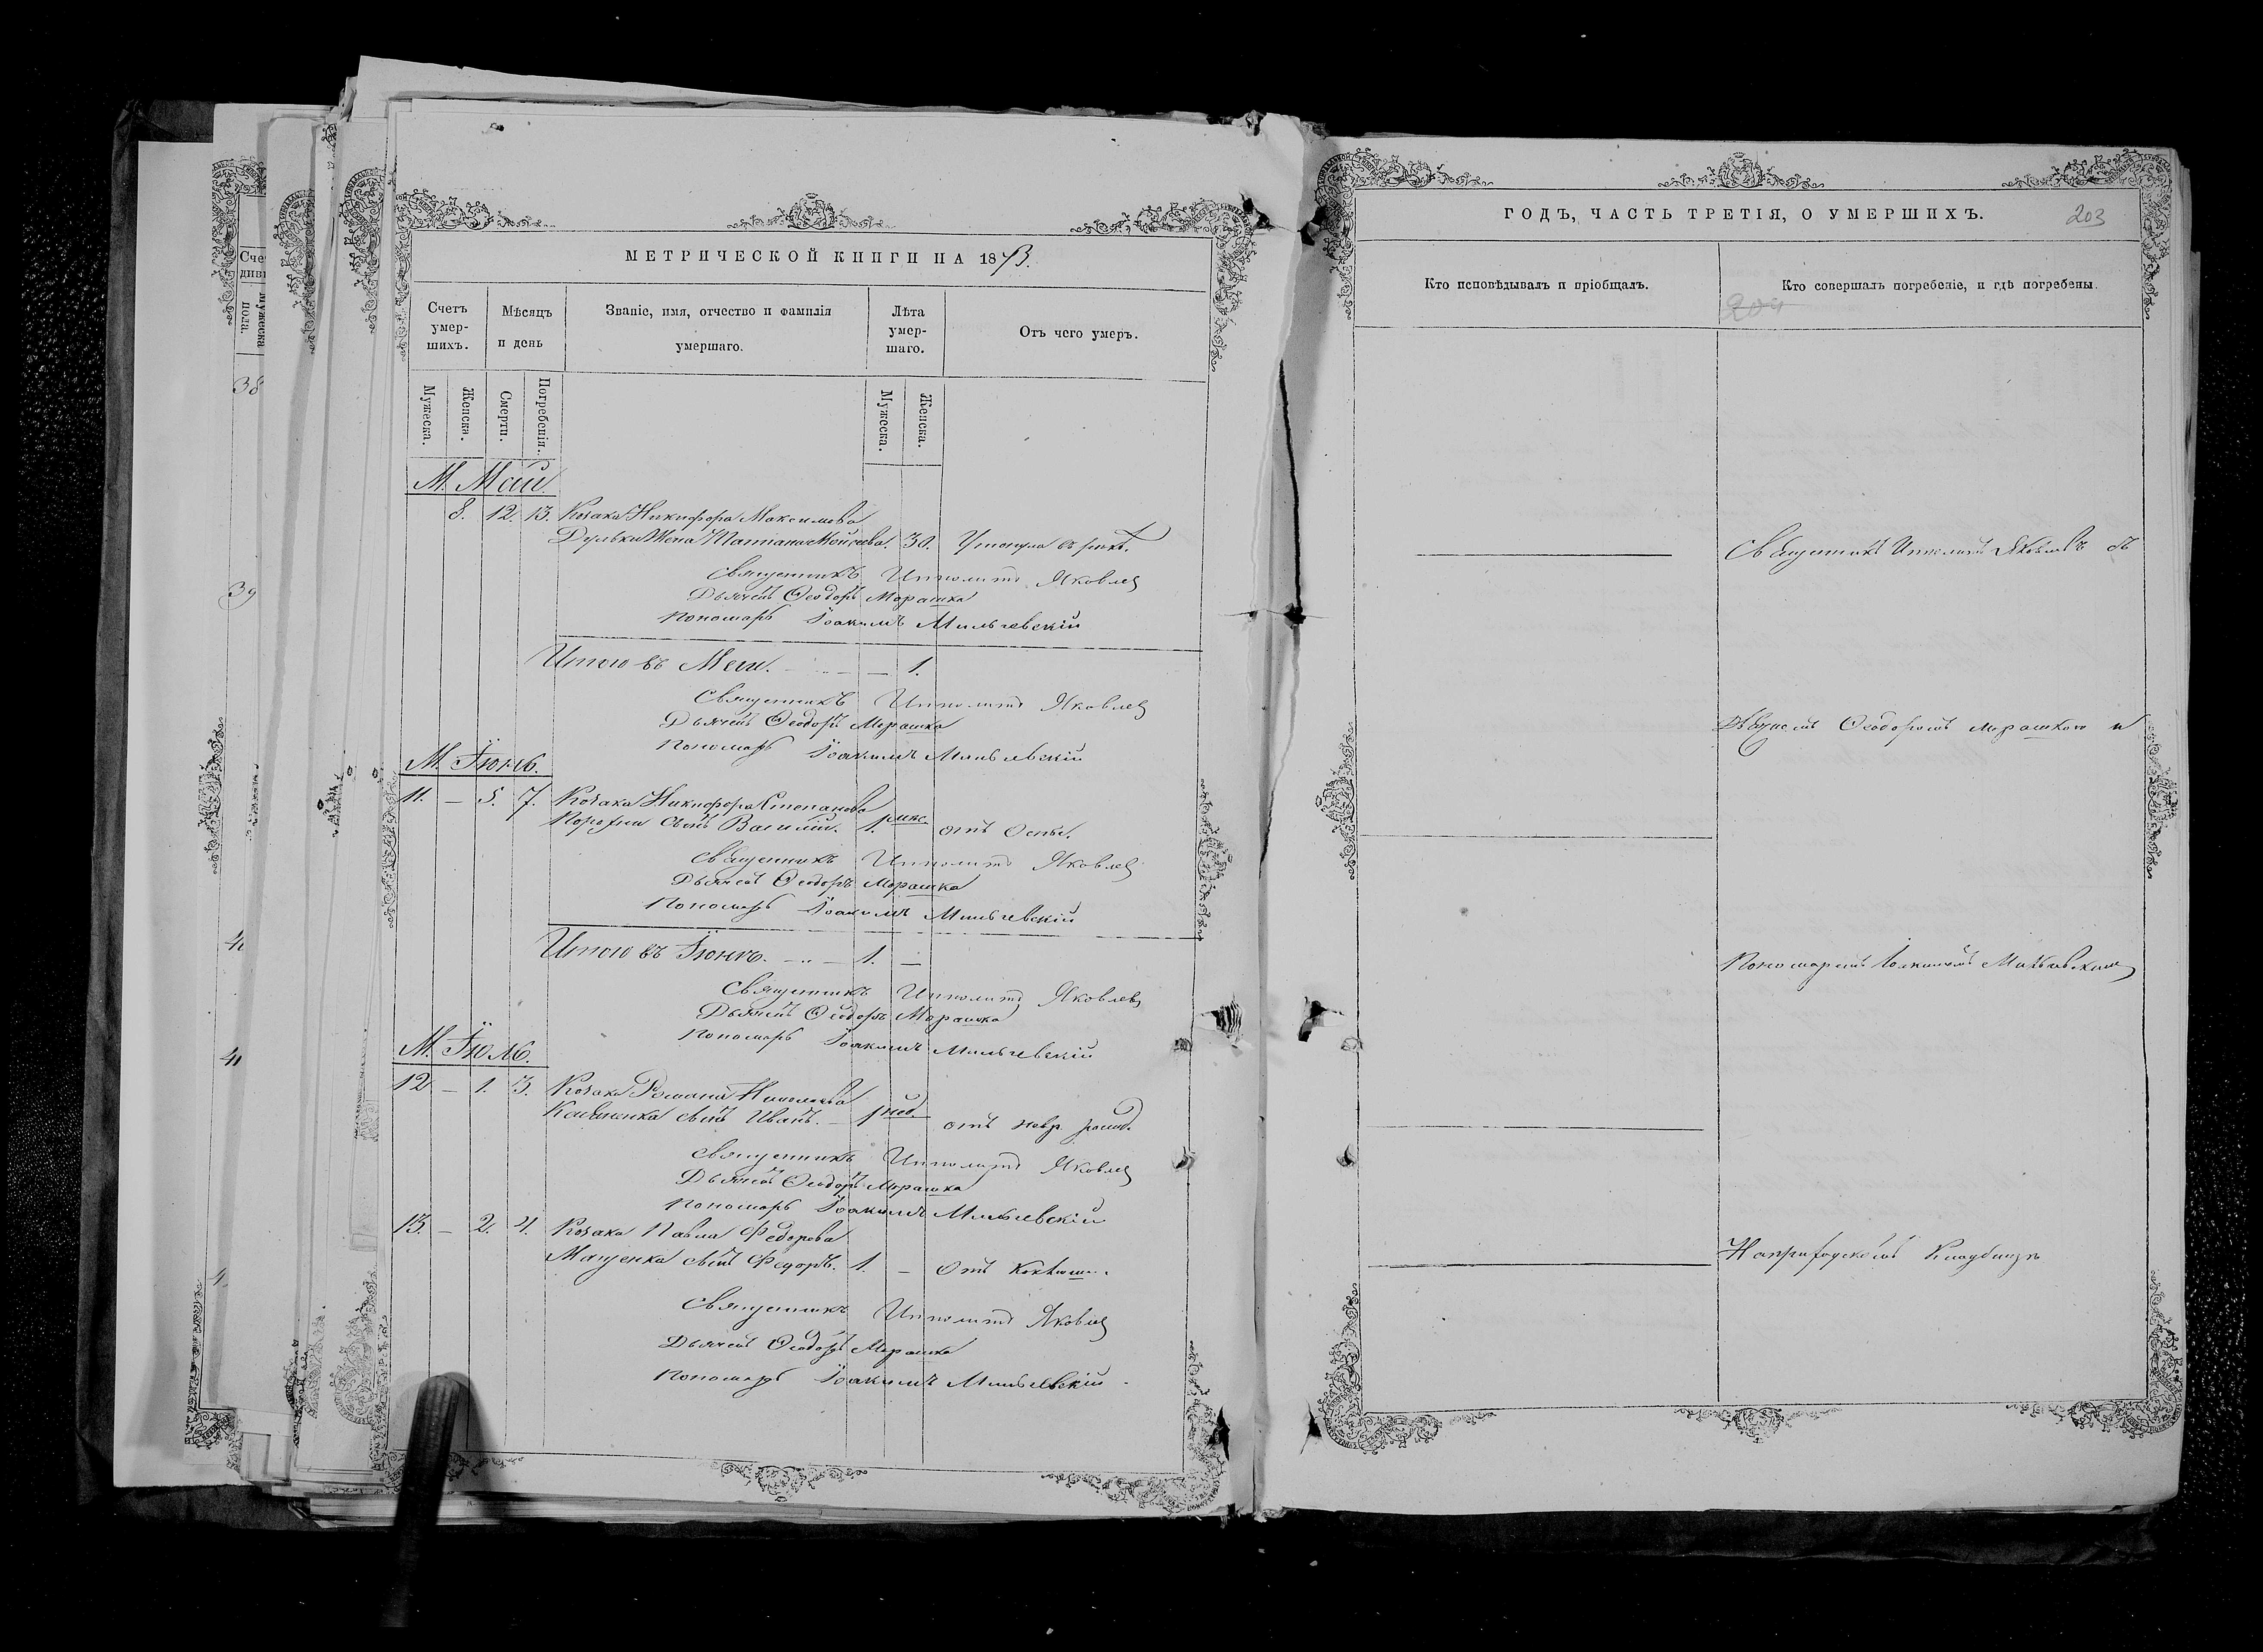 МЕТРИЧЕСКОЙ КНИГИ НА 1873.
Счетъ умер-
шихъ.
Мѣсяцъ
и день
Званіе, имя, отчество и фамилія
умершаго.
Лѣта
умер-
шаго.
Отъ чего умеръ.
Мужеска.
Женска.
Смерти.
Погребенія.
Мужеска.
Женска.
М. Май.
8. 12. 13. Козака Никифора Максимова
жена Татіана Моисеева. 30. Утонула въ
Священникъ Ипполитъ Яковлев
Дьячекъ ѲеодоръМорашка
Пономарь Іоакимъ Мильчевскій
Итого въ Маи. — 1.
Священникъ Ипполитъ Яковлев
Дьячекъ Ѳеодоръ Морашка
Пономарь Іоакимъ Мильчевскій
М. Іюнь.
11. — 5. 7. Козака Никифора Степанова
сынъ Василій. 1. отъ Оспы.
Священникъ Ипполитъ Яковлев
Дьячекъ Ѳеодоръ Морашка
Пономарь Іоакимъ Мильчевскій
Итого въ Іюнѣ. — 1. —
Священникъ Ипполитъ Яковлев
Дьячекъ Ѳеодоръ Морашка
Пономарь Іоакимъ Мильчевскій
М. Іюль.
12 — 1. 3. Козака Романа
сынъ Иванъ. — 1 нед. отъ
Священникъ Ипполитъ Яковлев
Дьячекъ Ѳеодоръ Морашка
Пономарь Іоакимъ Мильчевскій
13. — 2. 4. Козака Павла Федорова
Маценка сынъ Федоръ. 1. — Отъ Коклюша.
Священникъ Ипполитъ Яковлев
Дьячекъ Ѳеодоръ Морашка
Пономарь Іоакимъ Мильчевскій.
ГОДЪ, ЧАСТЬ ТРЕТІЯ, О УМЕРШИХЪ.
203
Кто исповѣдывалъ и пріобщалъ.
Кто совершалъ погребеніе, и гдѣ погребены.
204
Священникъ Ипполитъ Яковлевъ съ
Дьячкомъ Ѳеодоромъ Морашкою и
Пономаремъ Іоакимомъ Мильчевскимъ
На приходскомъ Кладбищѣ
38
39
4
4
4